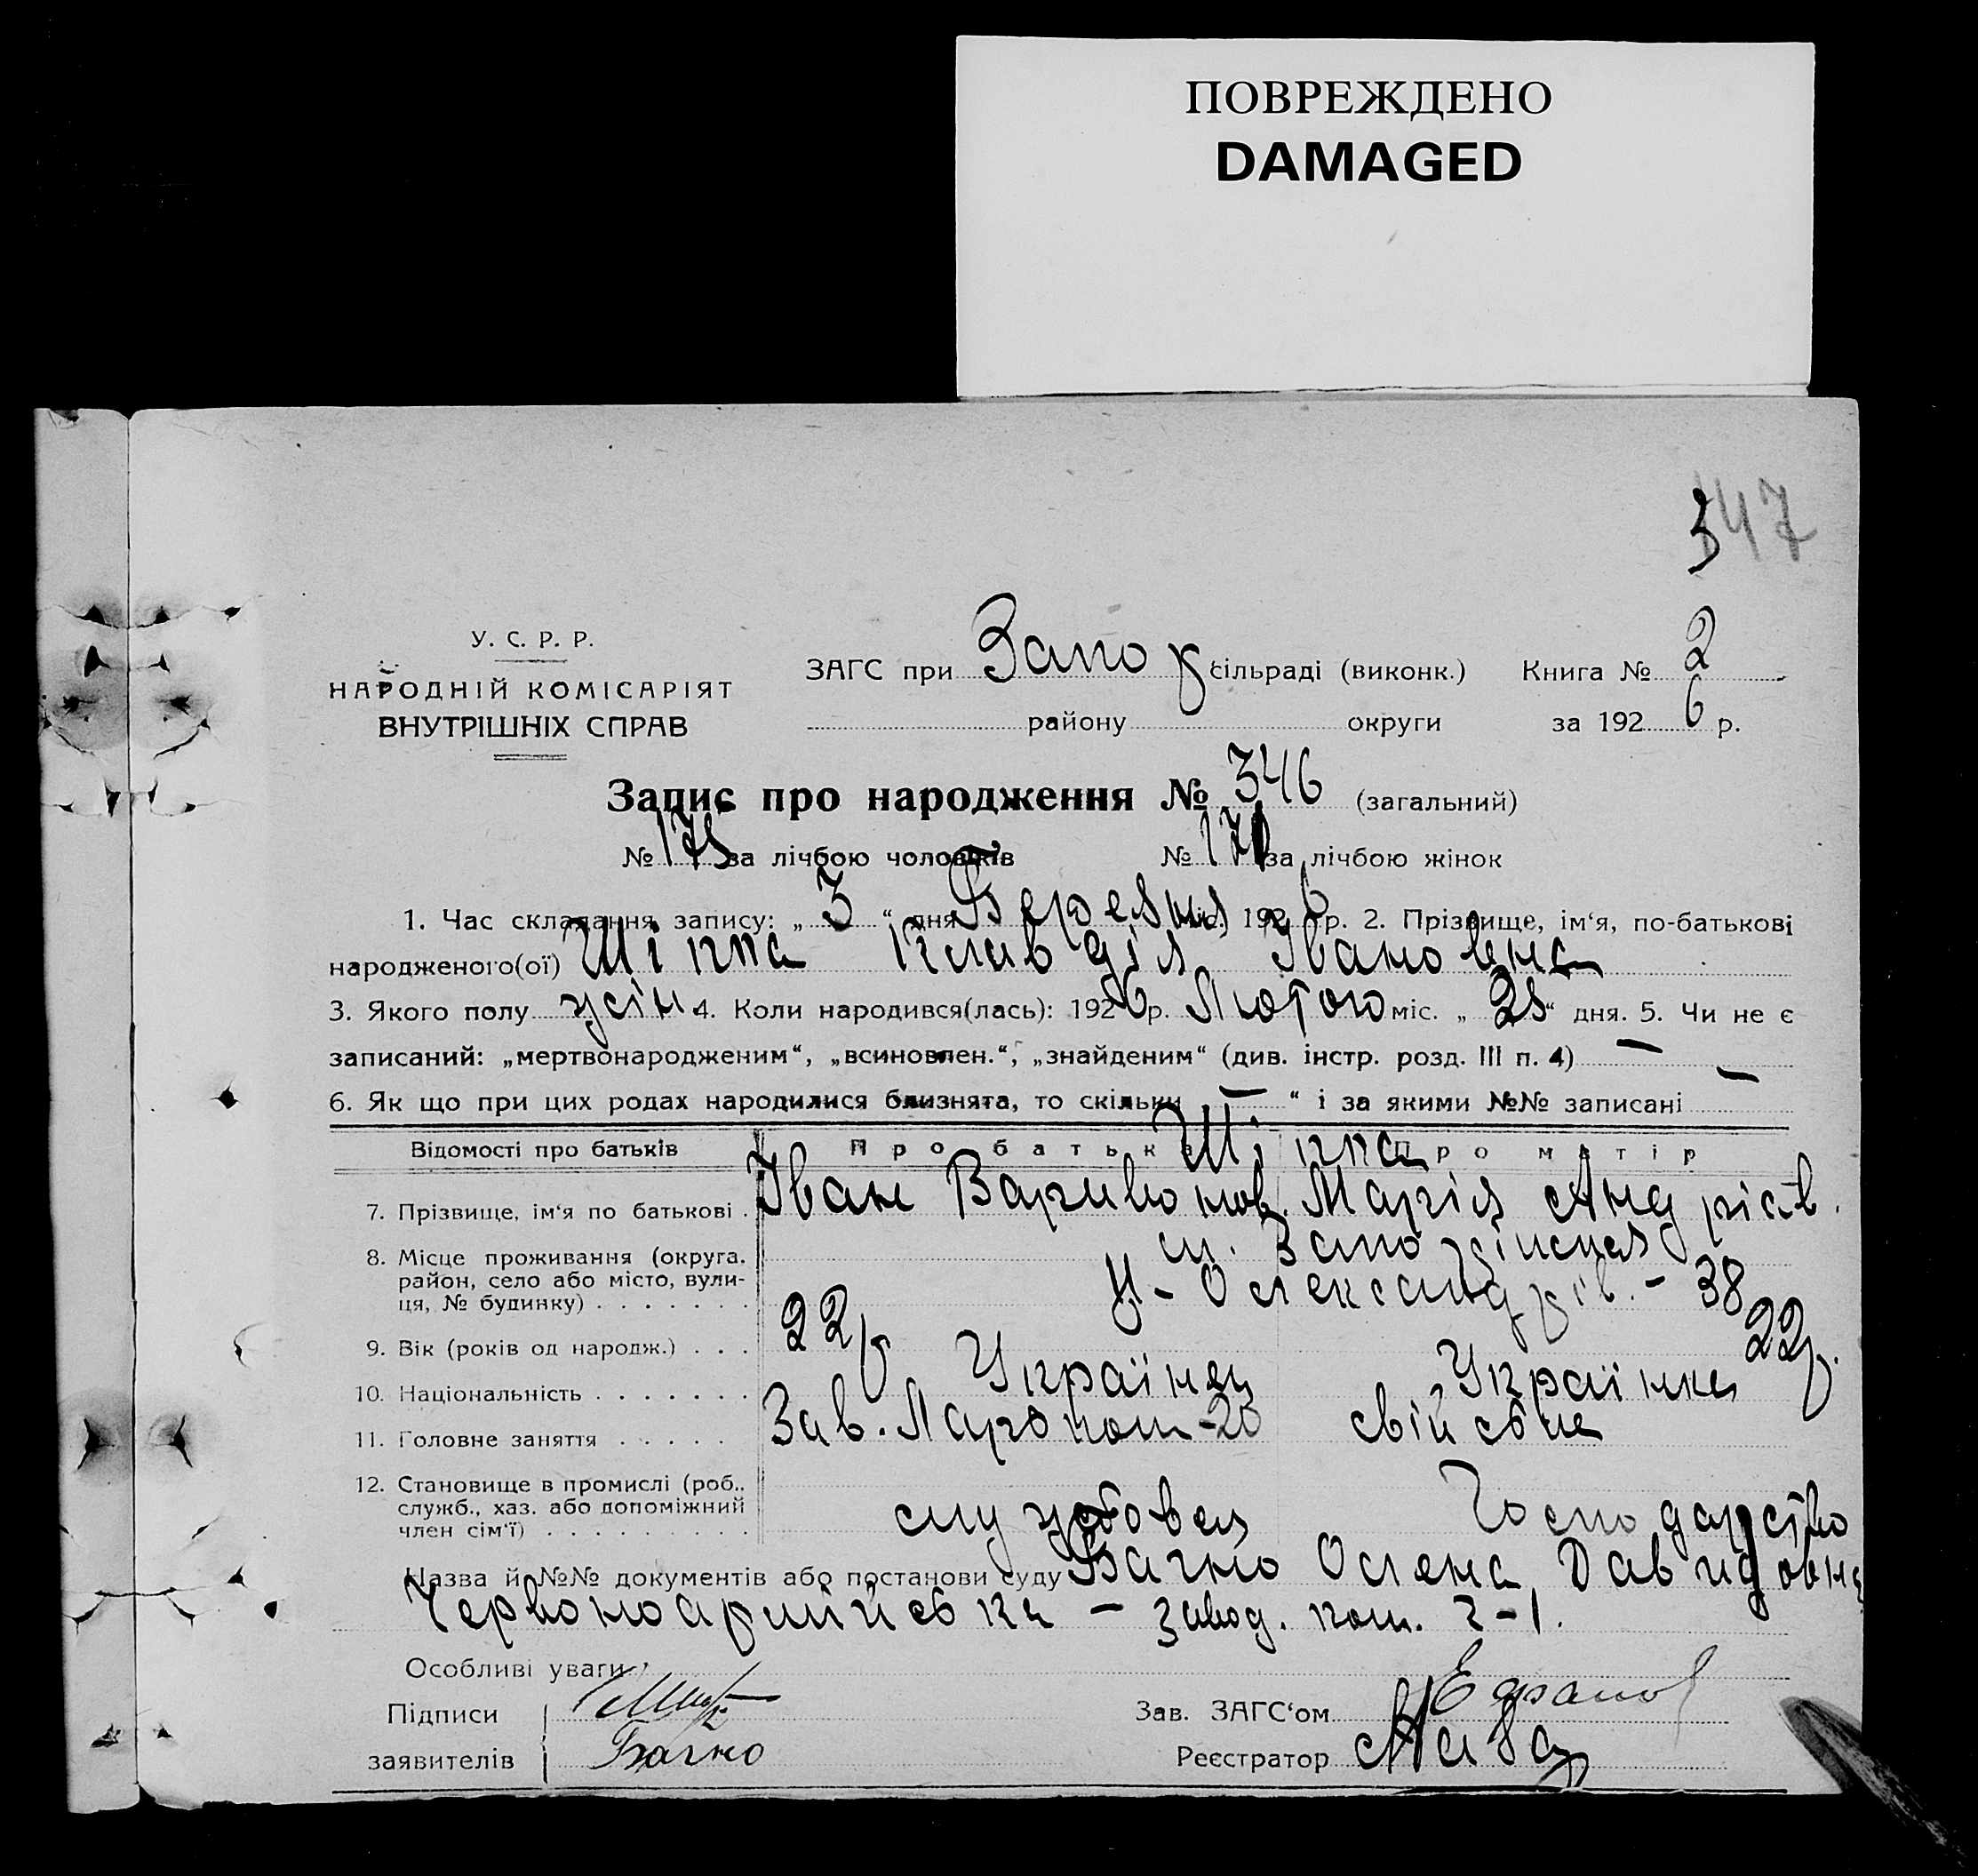 ПОВРЕЖДЕНО
DAMAGED
347
У. С. Р. Р.
НАРОДНІЙ КОМІСАРІЯТ
ВНУТРІШНІХ СПРАВ
ЗАГС при Запор сільраді (виконк.) Книга № 2
району округи за 1926 р.
Запис про народження № 346 (загальний)
№ 175 за лічбою чоловіків № 171 за лічбою жінок
1. Час складання запису: „ 3 “ дня Березня міс. 1926 р. 2. Прізвище, ім‘я, по-батькові
народженого(ої) Шіпка Клавдія Івановена
3. Якого полу жін. 4. Коли народився(лась): 1926 р. Лютого міс. „ 25 “ дня. 5. Чи не є
записаний: „мертвонародженим“, „всиновлен.“, „знайденим“ (див. інстр. розд. III п. 4) —
6. Як що при цих родах народилися близнята, то скільки — “ і за якими №№ записані —
Відомості про батьків Про батька Про матір
Шіпка
7. Прізвище, ім‘я по батькові . Іван Варивонов. Марія Андрієв.
8. Місце проживання (округа, район, село або місто, вулиця, № будинку) . . . . . . .
Н-Олександрів. - 38
9. Вік (років од народж.) . . . 22р 22р.
10. Національність . . . . . . . Українец Українка
11. Головне заняття . . . . . Зав. свійське
12. Становище в промислі (роб., служб., хаз. або допоміжний член сім‘ї) . . . . . . . . . . службовец Господарство
Назва й №№ документів або постанови суду Багно Олена Давидовна
Червоноармійська - завод. пом. 2-1.
Особливі уваги
Підписи
заявителів Багно
Зав. ЗАГС‘ом
Реєстратор